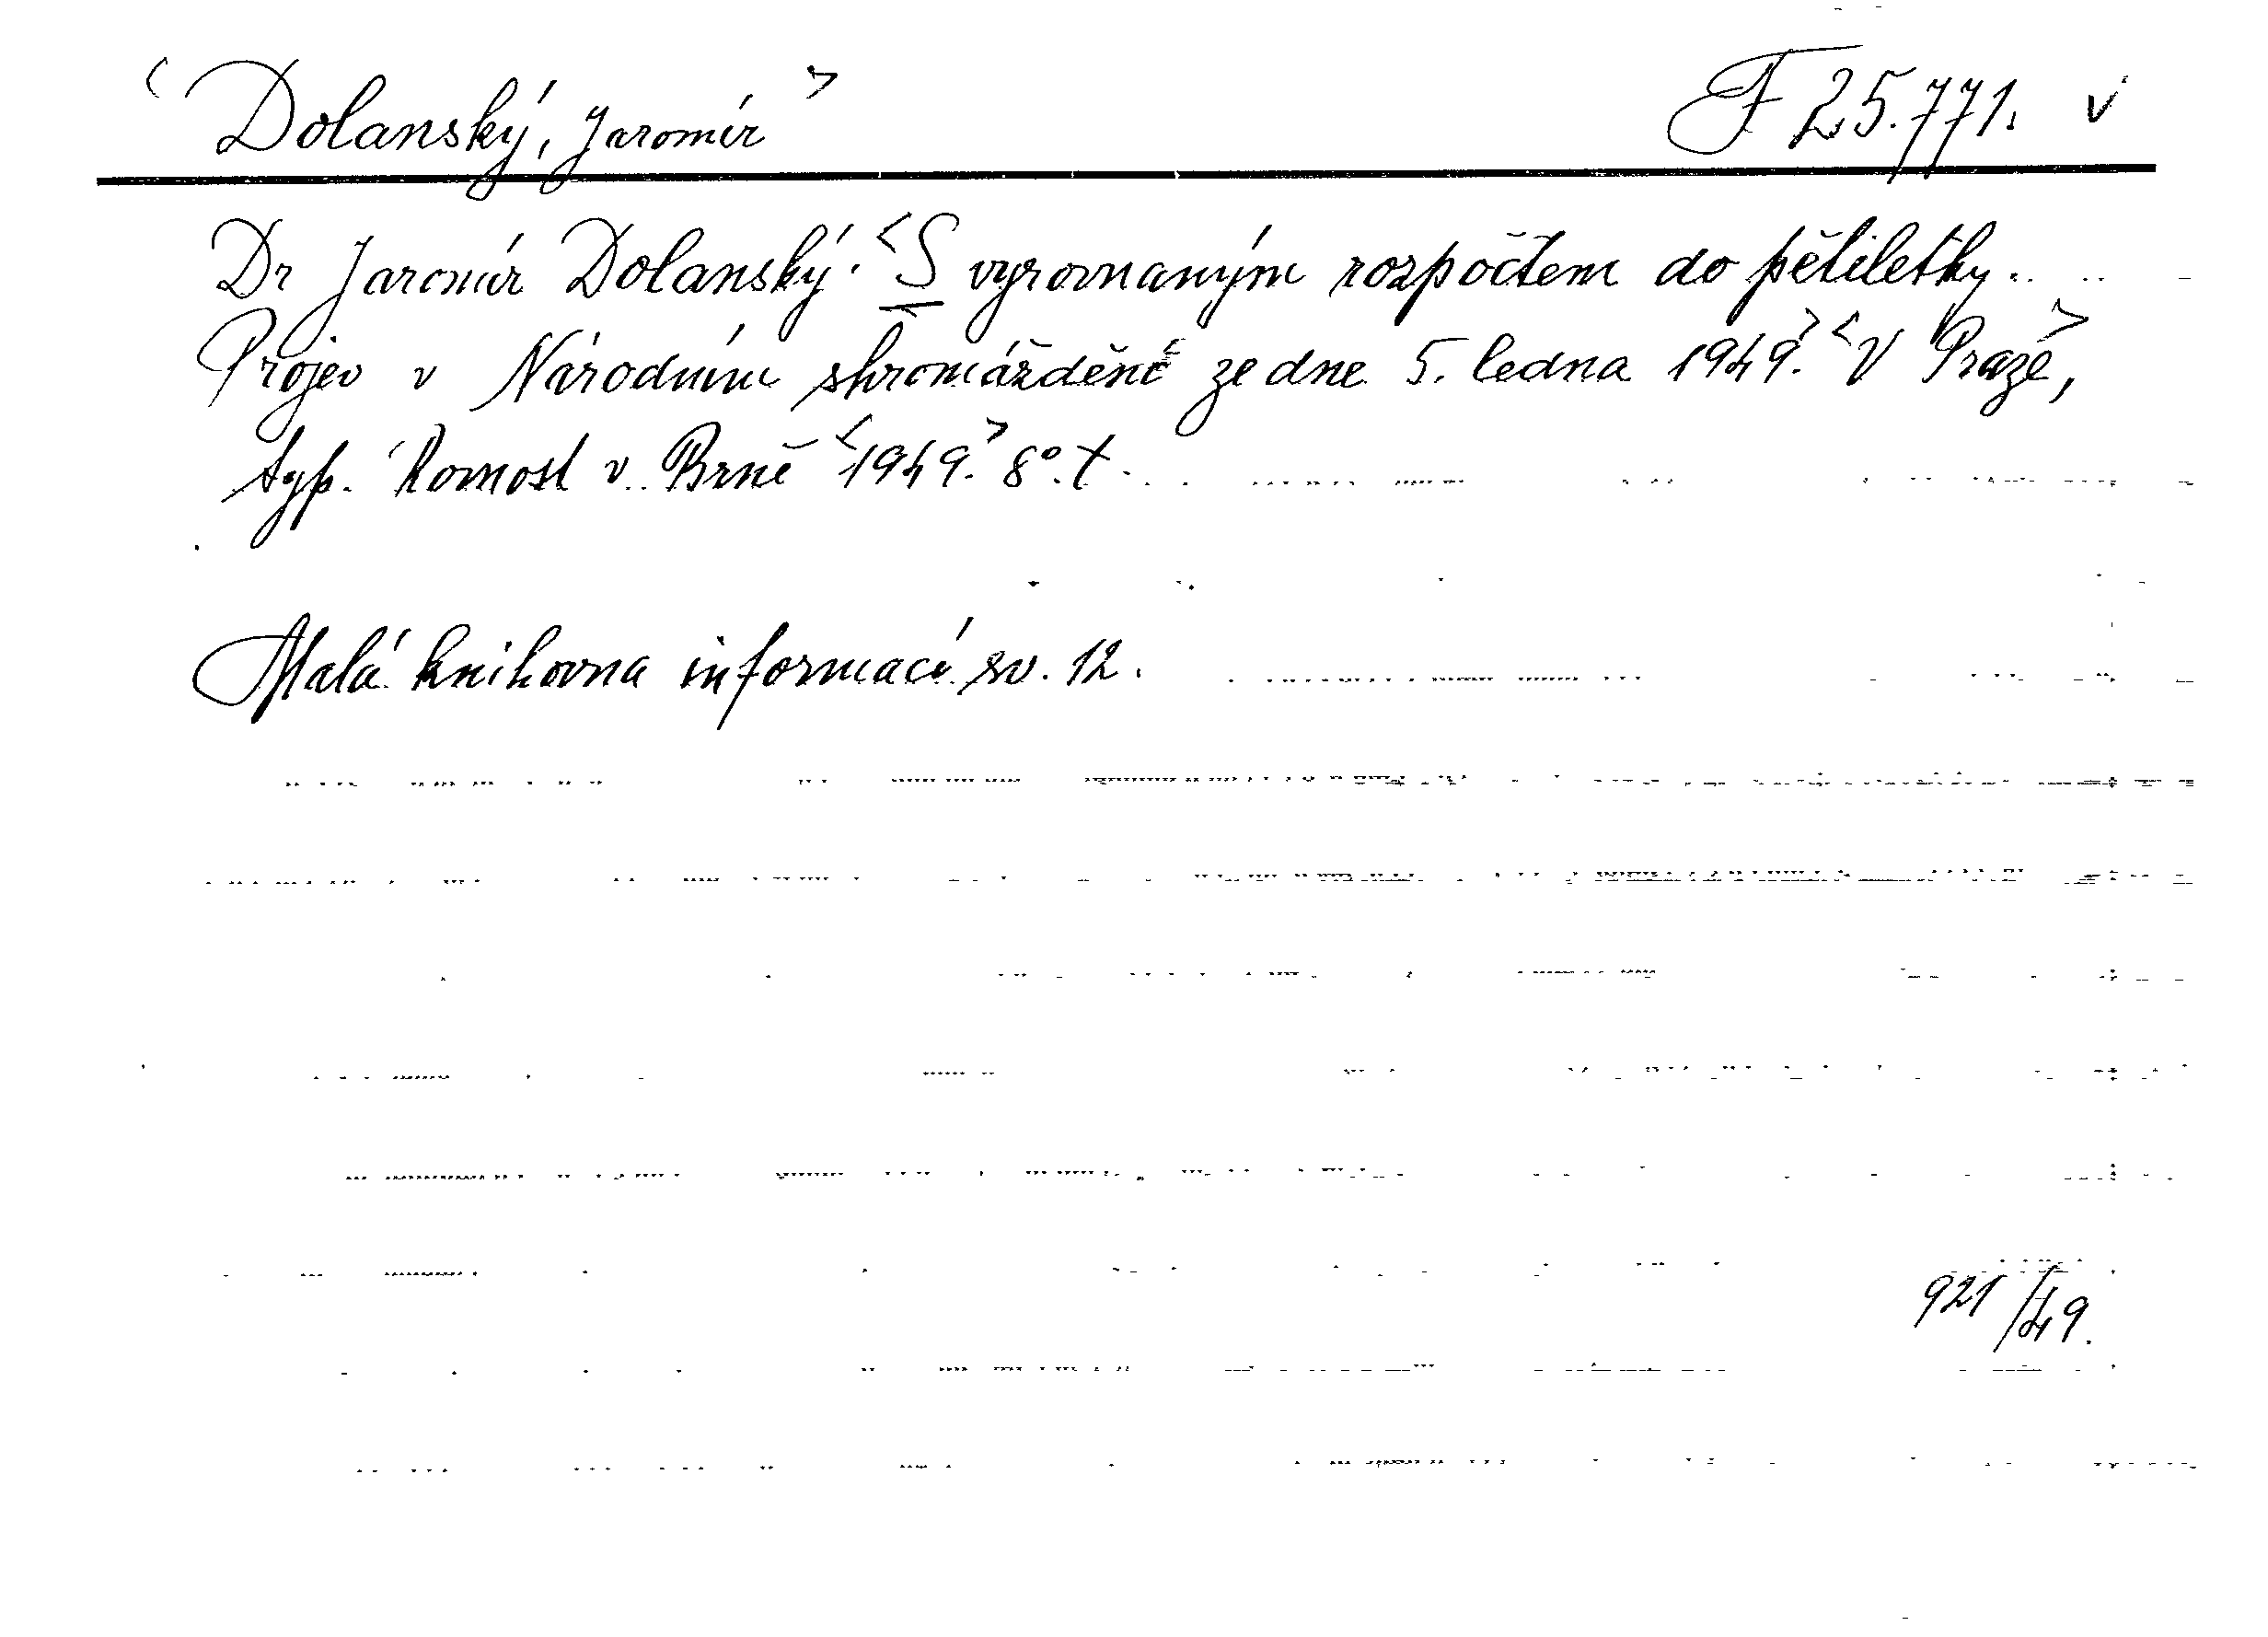 <Dolanský, Jaromír> F 25.771. v
Dr Jaromír Dolanský: <S vyrovnaným rozpočtem do pětiletky.
Projev v Národním shromáždění ze dne 5. ledna 1949.> <V Praze,>
typ. Rovnost v Brně <1949.> 8°. t.
Malá knihovna informací sv. 12.
921/49.